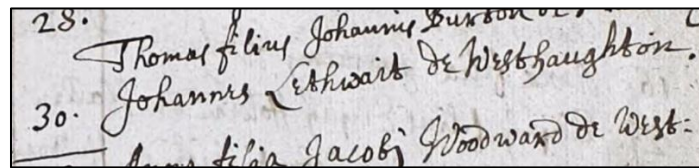 28. Thomas filius Johannis Burton de
Johannes Lethwait de Westhaughton.
30.
Anna filia Jacobj Woodward de West: